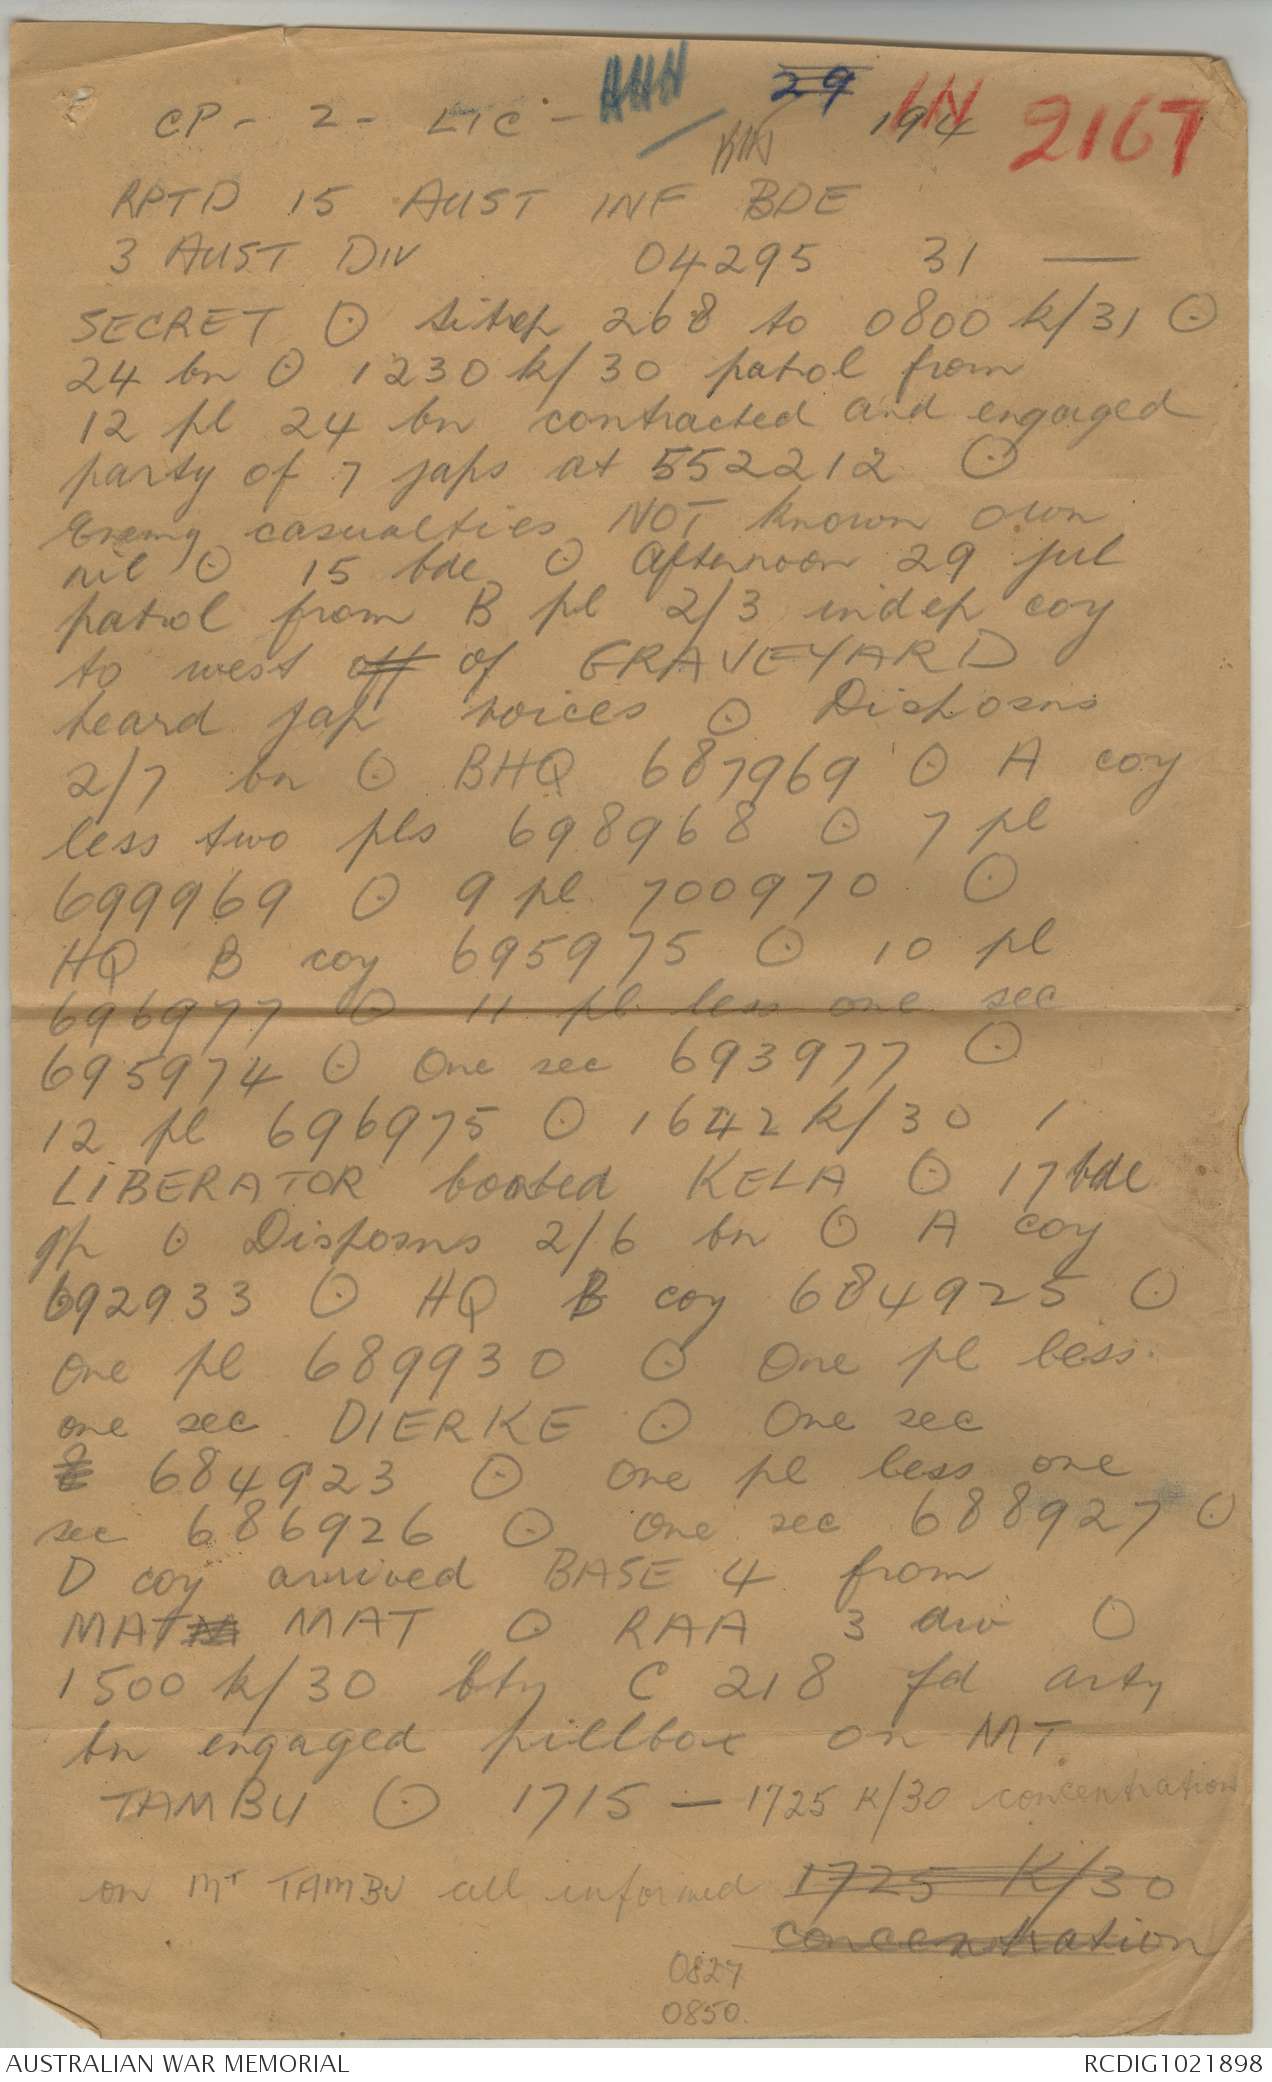 CP - 2 - LIC - 29 194 IN 2167
RPTD 15 AUST INF BDE
3 AUST DIV 04295 31 —
SECRET ⊙ sitrep 268 to 0800 k/31 ⊙
24 bn ⊙ 1230 k/30 patrol from
12 pl 24 bn contracted and engaged
party of 7 japs at 552212 ⊙
Enemy casualties NOT known own
nil ⊙ 15 bde ⊙ Afternoon 29 jul
patrol from B pl 2/3 indep coy
to west off of GRAVEYARD
heard jap voices ⊙ Disposns
2/7 bn ⊙ BHQ 687969 ⊙ A coy
less two pls 698968 ⊙ 7 pl
699969 ⊙ 9 pl 700970 ⊙
HQ B coy 695975 ⊙ 10 pl
696977 ⊙ 11 pl less one sec
695974 ⊙ One sec 693977 ⊙
12 pl 696975 ⊙ 1642 k/30 1
LIBERATOR bombed KELA ⊙ 17 bde
gp ⊙ Disposns 2/6 bn ⊙ A coy
692933 ⊙ HQ B coy 684925 ⊙
One pl 689930 ⊙ One pl less
one sec DIERKE ⊙ One sec
684923 ⊙ One pl less one
sec 686926 ⊙ One sec 688927 ⊙
D coy arrived BASE 4 from
MATM MAT ⊙ RAA 3 div ⊙
1500 k/30 bty C 218 fd arty
bn engaged pillbox on MT
TAMBU ⊙ 1715 — 1725 K/30 concentration
on MT TAMBU all informed 1725 K/30
concentration
0827
0850.
AUSTRALIAN WAR MEMORIAL RCDIG1021898